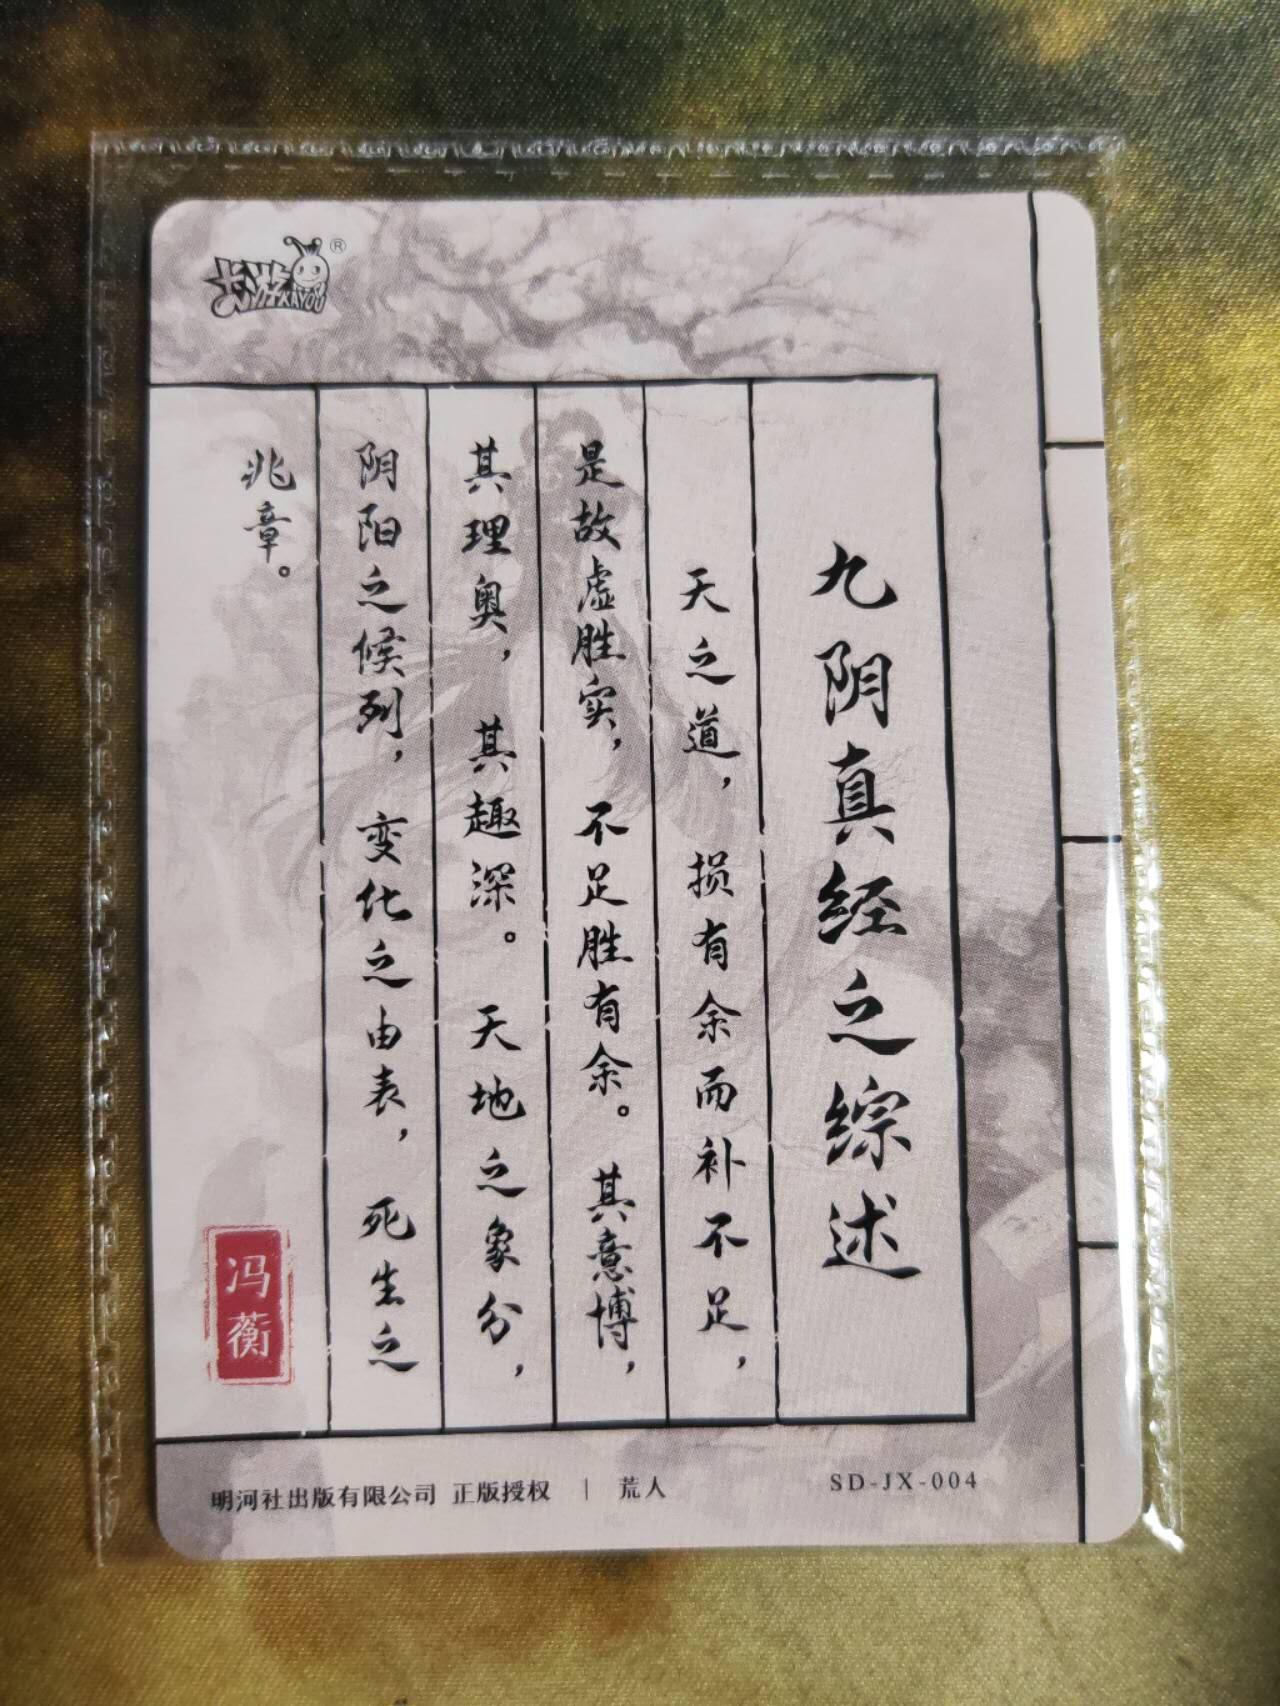 卡游 KAYOU ®
九阴真经之综述
天之道，损有余而补不足，
是故虚胜实，不足胜有余。其意博，
其理奥，其趣深。天地之象分，
阴阳之候列，变化之由表，死生之
兆章。
冯蘅
明河社出版有限公司 正版授权 | 荒人
SD-JX-004